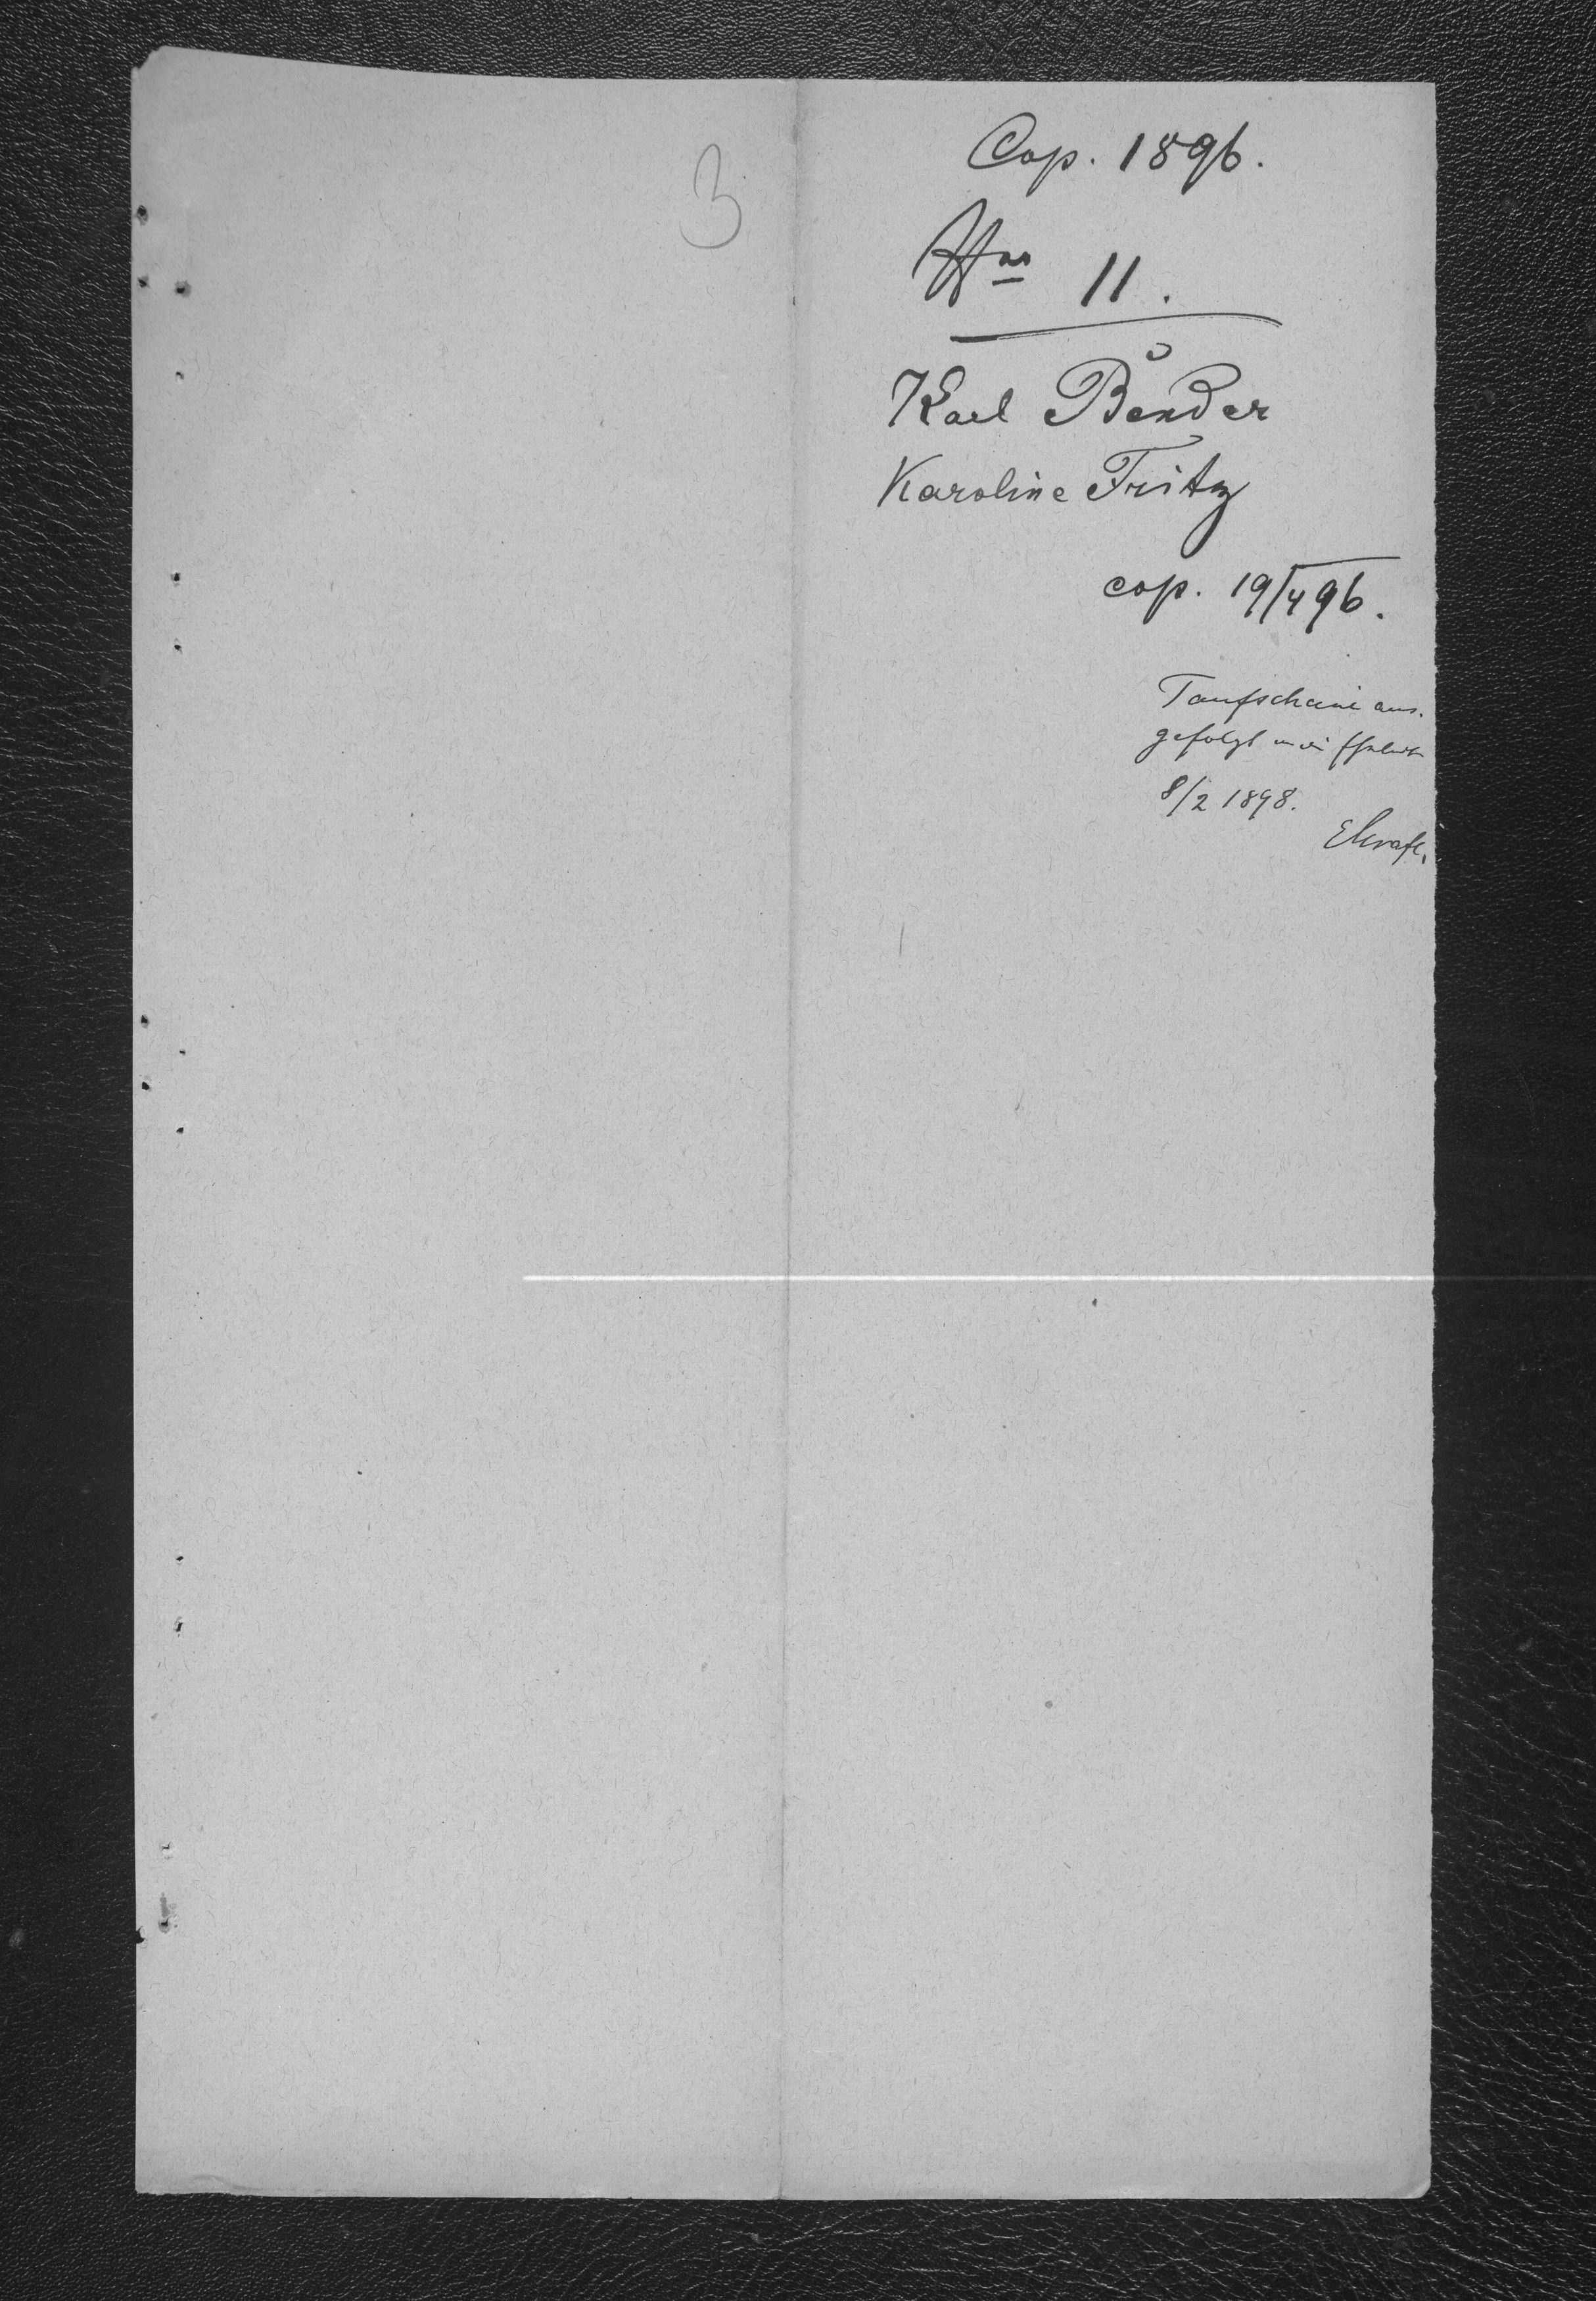 3
Cop. 1896.
Nro 11.
Karl Bender
Karoline Fritz
cop. 19/4 96.
Taufschein aus-
gefolgt
8/2 1898.